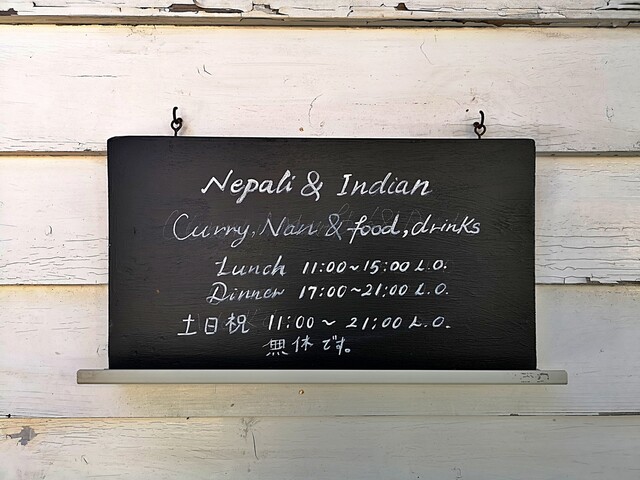 Nepali & Indian
Curry, Nan & food, drinks
Lunch 11:00~15:00 L.O.
Dinner 17:00~21:00 L.O.
土日祝 11:00~ 21:00 L.O.
無休です。